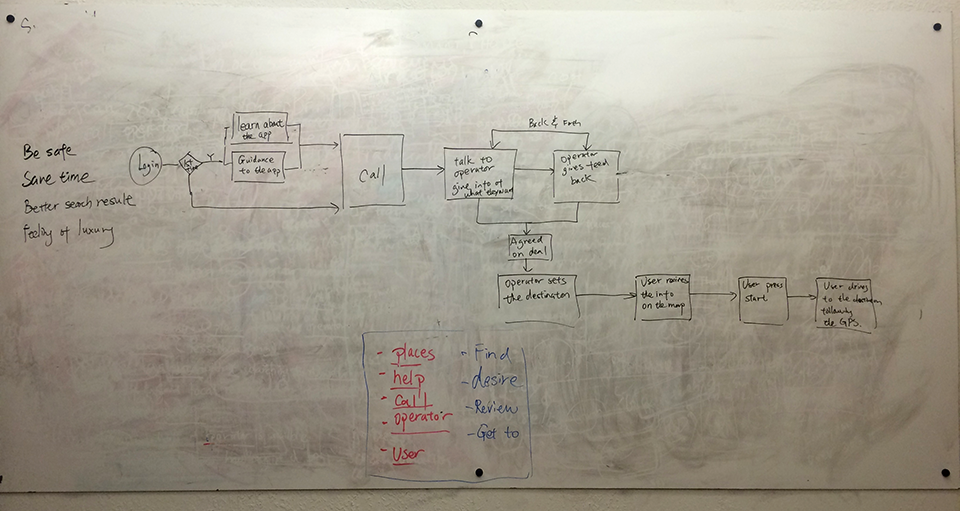 Be safe
Save time
Better search result
feeling of luxury
Login
1st
Y
learn about
the app
Guidance
to the app
Call
Back & Forth
talk to
operator
give info of
what
Operator
gives feed
back
Agreed
on deal
Operator sets
the destination
User
the info
on the map
User press
start
User drives
to the destination
following
the GPS.
- places
- help
- Call
- operator
- User
- Find
- desire
- Review
- Get to